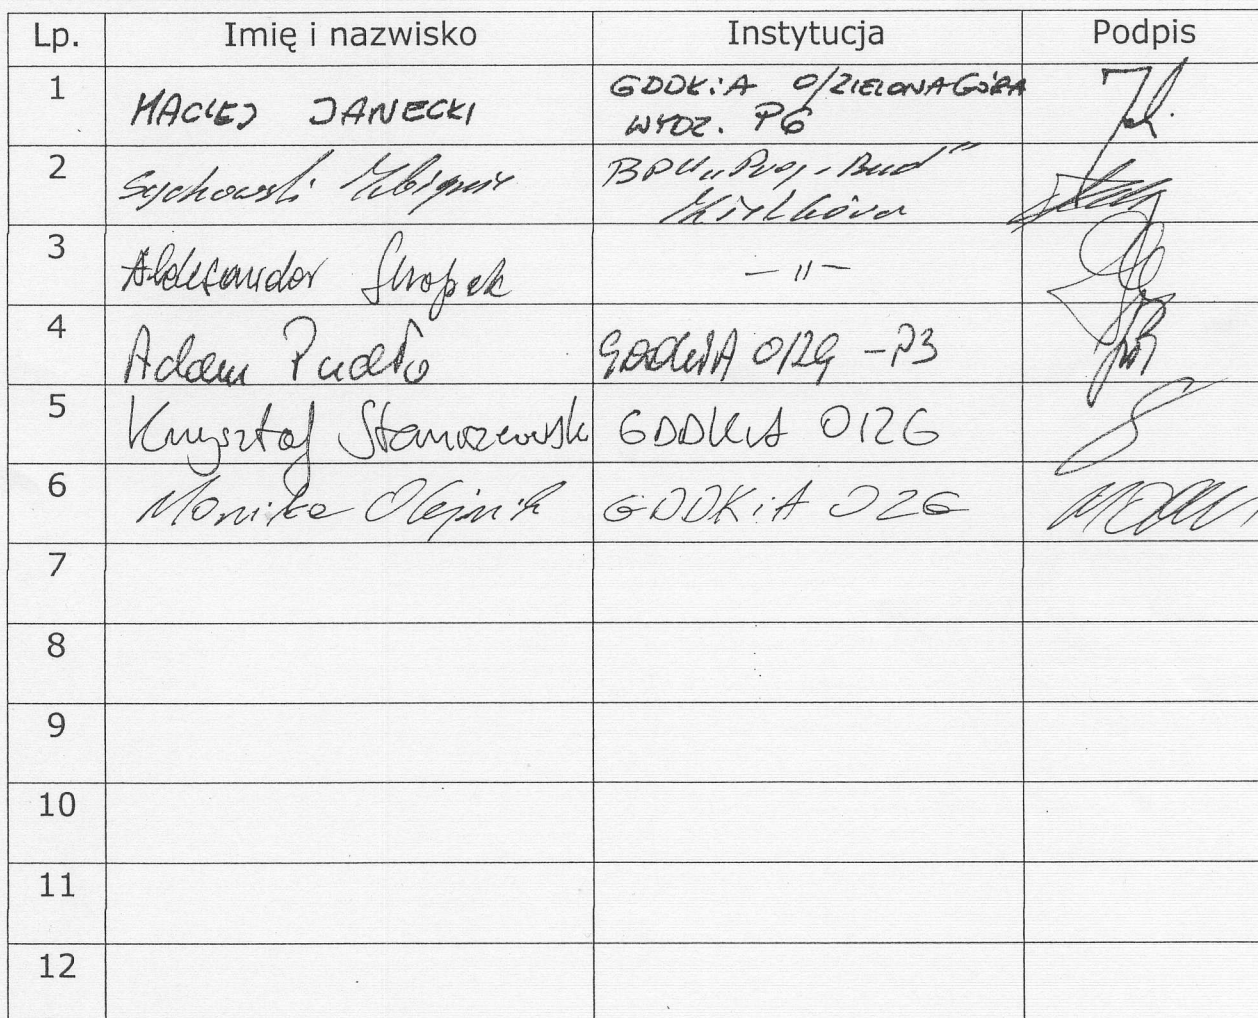 Lp. Imię i nazwisko Instytucja Podpis
1 MACIEJ JANECKI GDDKiA O/ZIELONA GÓRA
WYDZ. P6
2 Sychowski Zbigniew BPU „Proj-Bud”
Góra
3 Aleksander - " -
4 Adam Pudło GDDKiA O/ZG - P3
5 Krzysztof Staniszewski GDDKiA O/ZG
6 Monika Olejnik GDDKiA OZG
7
8
9
10
11
12